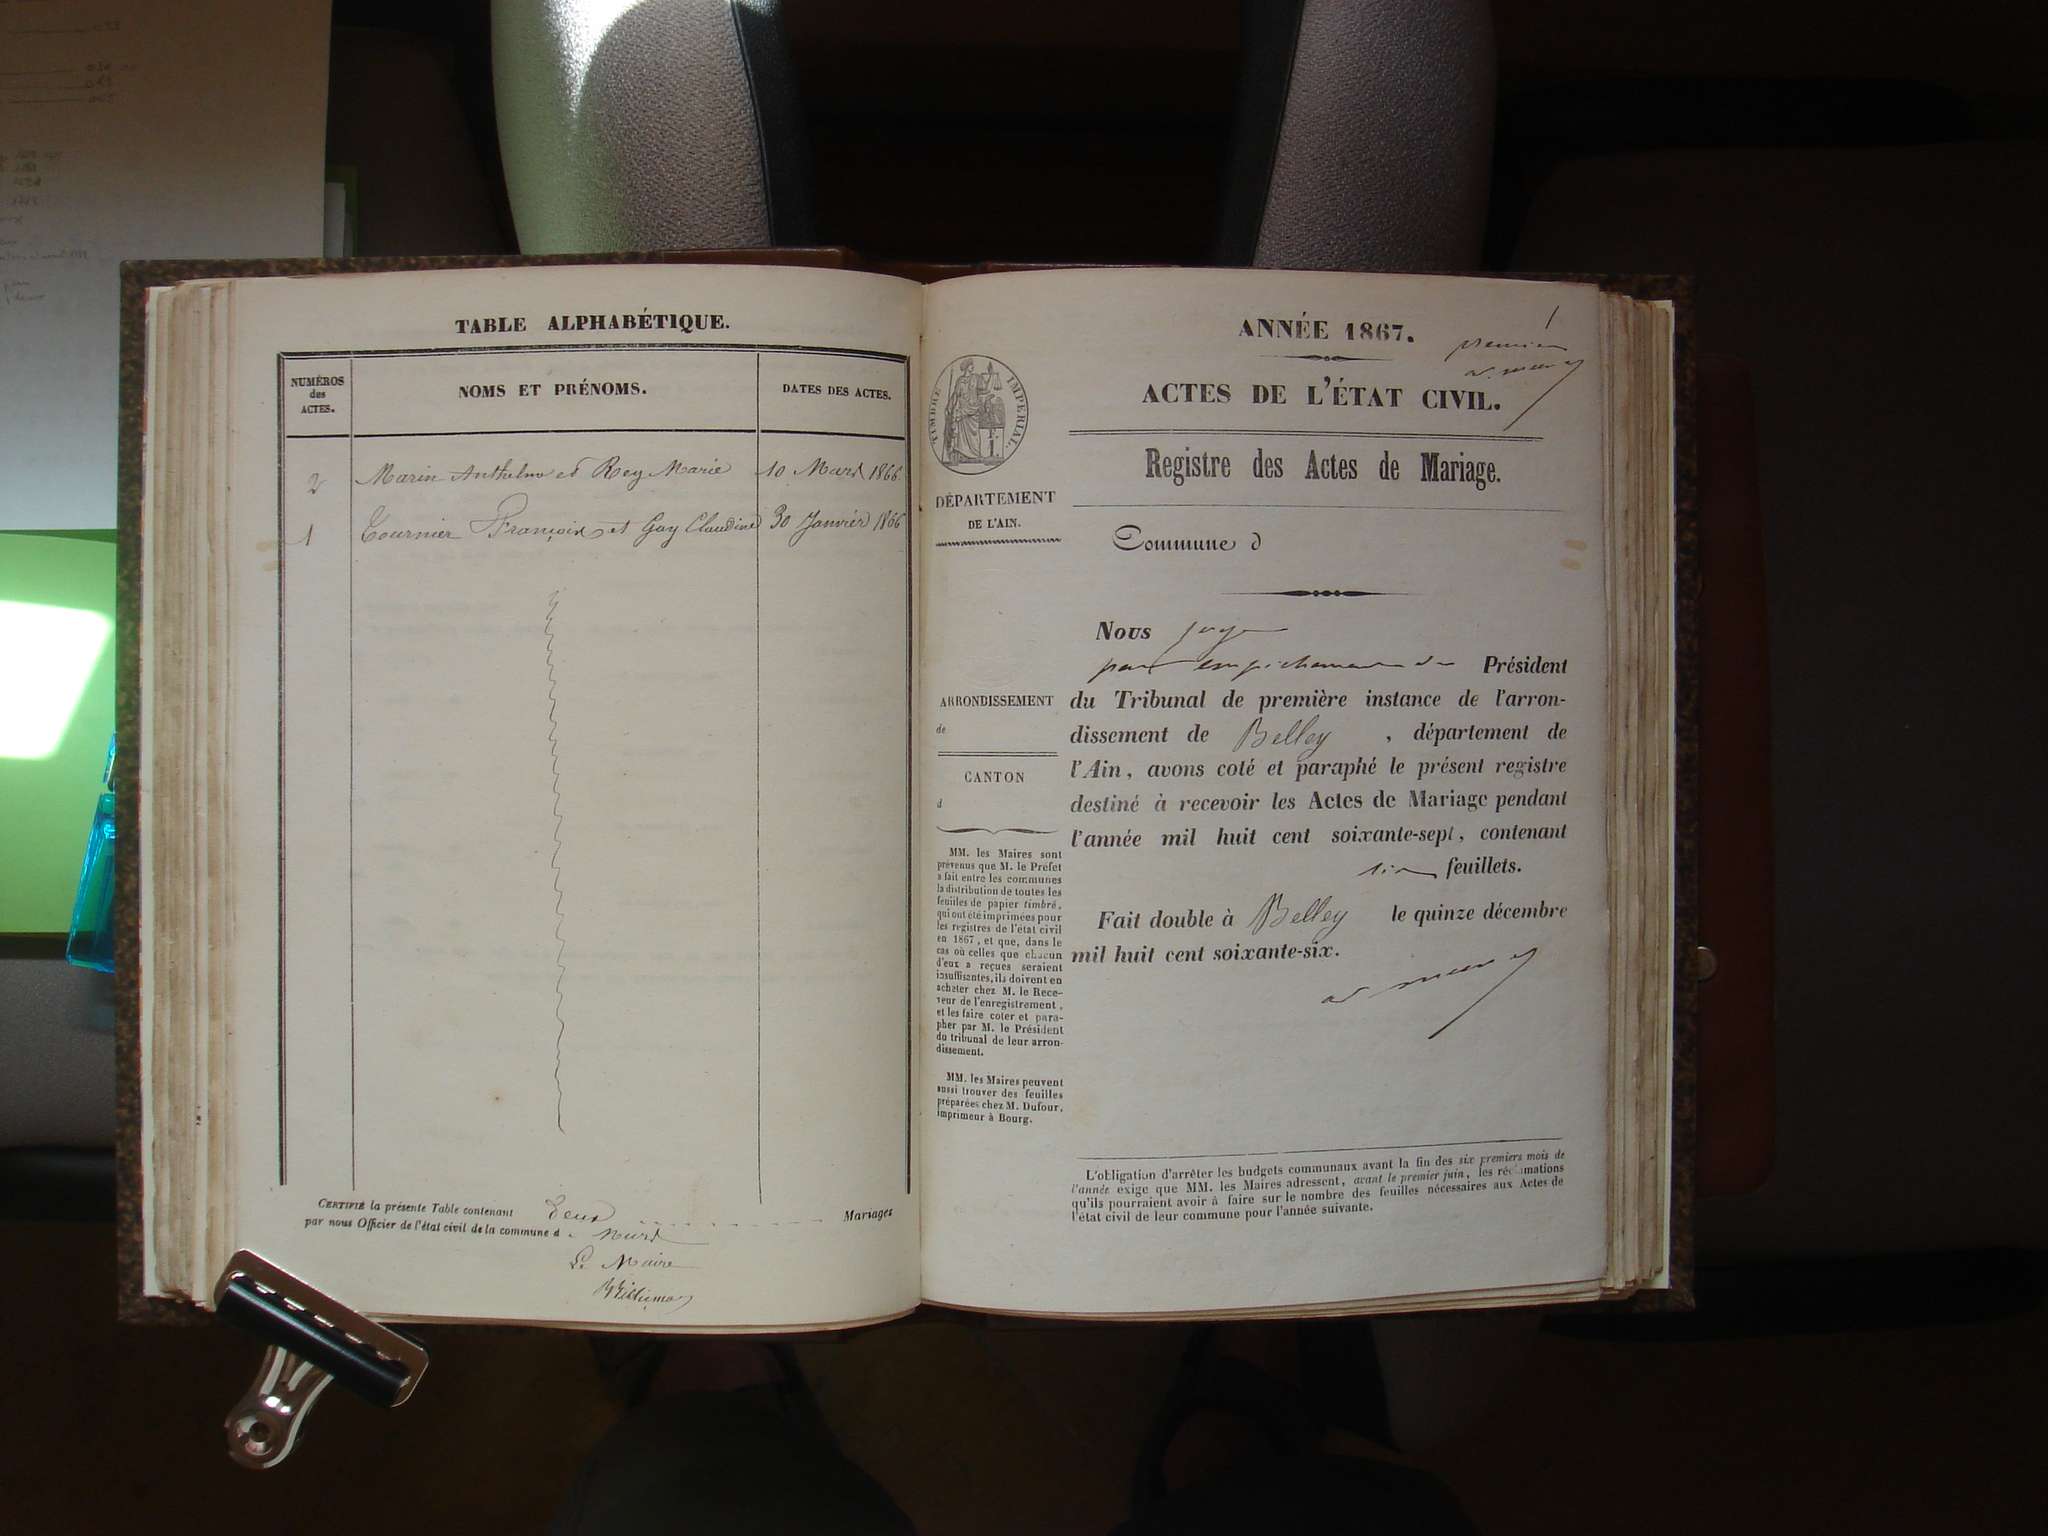 TABLE ALPHABÉTIQUE.
NUMÉROS
des
ACTES.
NOMS ET PRÉNOMS.
DATES DES ACTES.
2 Marin Anthelme et Rey Marie 10 Mars 1866
1 Tournier François et Gay Claudine 30 Janvier 1866
CERTIFIÉ la présente Table contenant Deux Mariages
par nous Officier de l'état civil de la commune d
Le Maire
ANNÉE 1867.
1
premier
ACTES DE L'ÉTAT CIVIL.
Registre des Actes de Mariage.
TIMBRE IMPERIAL.
DÉPARTEMENT
DE L'AIN.
Commune d
ARRONDISSEMENT
de
CANTON
d
MM. les Maires sont
prévenus que M. le Préfet
a fait entre les communes
la distribution de toutes les
feuilles de papier timbré,
qui ont été imprimées pour
les registres de l'état civil
en 1867, et que, dans le
cas où celles que chacun
d'eux a reçues seraient
insuffisantes, ils doivent en
acheter chez M. le Rece-
veur de l'enregistrement,
et les faire coter et para-
pher par M. le Président
du tribunal de leur arron-
dissement.
MM. les Maires peuvent
aussi trouver des feuilles
préparées chez M. Dufour,
imprimeur à Bourg.
Nous juge
par empêchement du Président
du Tribunal de première instance de l'arron-
dissement de Belley, département de
l'Ain, avons coté et paraphé le présent registre
destiné à recevoir les Actes de Mariage pendant
l'année mil huit cent soixante-sept, contenant
feuillets.
Fait double à Belley le quinze décembre
mil huit cent soixante-six.
L'obligation d'arrêter les budgets communaux avant la fin des six premiers mois de
l'année exige que MM. les Maires adressent, avant le premier juin, les réclamations
qu'ils pourraient avoir à faire sur le nombre des feuilles nécessaires aux Actes de
l'état civil de leur commune pour l'année suivante.